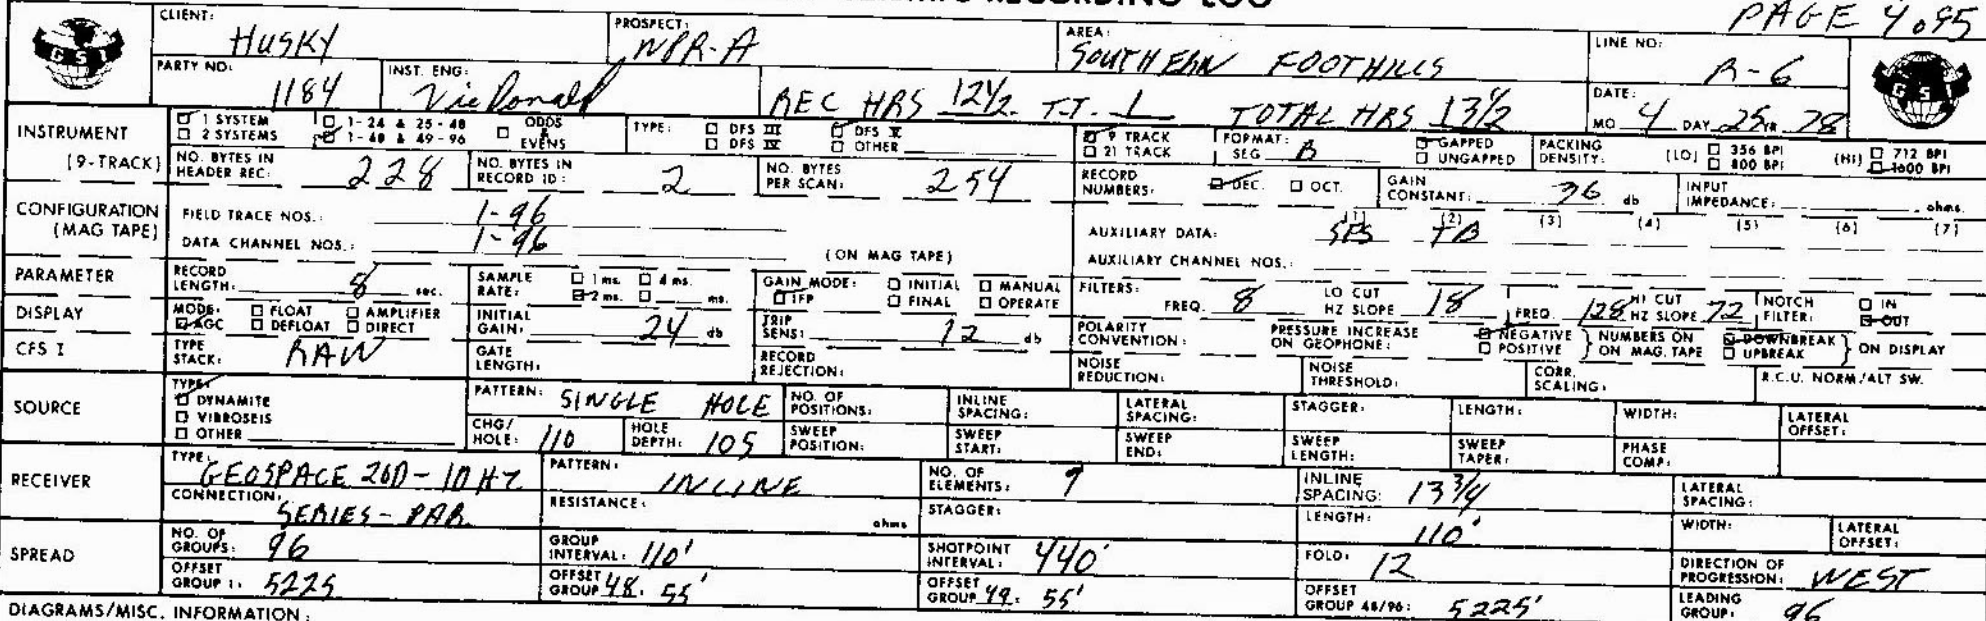 PAGE 4 of 5
CLIENT: HUSKY PROSPECT: NPR-A AREA: SOUTHERN FOOTHILLS LINE NO: R-6
GSI GSI
PARTY NO: 1184 INST. ENG: Vic Ronald REC HRS 12 1/2 T.T. 1 TOTAL HRS 13 1/2 DATE: MO 4 DAY 25 YR 78
INSTRUMENT (9-TRACK) 1 SYSTEM 2 SYSTEMS 1-24 & 25-48 1-48 & 49-96 ODDS & EVENS TYPE: DFS III DFS IV DFS V OTHER 9 TRACK 21 TRACK FORMAT: SEG B GAPPED UNGAPPED PACKING DENSITY: (LO) 356 BPI 800 BPI (HI) 712 BPI 1600 BPI
NO. BYTES IN HEADER REC: 228 NO. BYTES IN RECORD ID: 2 NO. BYTES PER SCAN: 254 RECORD NUMBERS: DEC. OCT. GAIN CONSTANT: 36 db INPUT IMPEDANCE: ohms
CONFIGURATION (MAG TAPE) FIELD TRACE NOS.: 1-96 AUXILIARY DATA: (1) SFS (2) TB (3) (4) (5) (6) (7)
DATA CHANNEL NOS.: 1-96 (ON MAG TAPE) AUXILIARY CHANNEL NOS.:
PARAMETER RECORD LENGTH: 8 sec. SAMPLE RATE: 1 ms. 4 ms. 2 ms. ms. GAIN MODE: INITIAL MANUAL IFP FINAL OPERATE FILTERS: FREQ. 8 LO CUT HZ SLOPE 18 FREQ 128 HI CUT HZ SLOPE 72 NOTCH FILTER: IN OUT
DISPLAY MODE: FLOAT AMPLIFIER AGC DEFLOAT DIRECT INITIAL GAIN: 24 db TRIP SENS: 12 db POLARITY CONVENTION: PRESSURE INCREASE ON GEOPHONE: NEGATIVE POSITIVE NUMBERS ON ON MAG. TAPE DOWNBREAK UPBREAK ON DISPLAY
CFS I TYPE STACK: RAW GATE LENGTH: RECORD REJECTION: NOISE REDUCTION: NOISE THRESHOLD: CORR. SCALING: R.C.U. NORM/ALT SW.
SOURCE TYPE: DYNAMITE VIBROSEIS OTHER PATTERN: SINGLE HOLE NO. OF POSITIONS: INLINE SPACING: LATERAL SPACING: STAGGER: LENGTH: WIDTH: LATERAL OFFSET:
CHG/HOLE: 110 HOLE DEPTH: 105 SWEEP POSITION: SWEEP START: SWEEP END: SWEEP LENGTH: SWEEP TAPER: PHASE COMP:
RECEIVER TYPE: GEOSPACE 20D-10HZ PATTERN: INLINE NO. OF ELEMENTS: 9 INLINE SPACING: 13 3/4 LATERAL SPACING:
CONNECTION: SERIES-PAR RESISTANCE: ohms STAGGER: LENGTH: 110' WIDTH: LATERAL OFFSET:
SPREAD NO. OF GROUPS: 96 GROUP INTERVAL: 110' SHOTPOINT INTERVAL: 440' FOLD: 12 DIRECTION OF PROGRESSION: WEST
OFFSET GROUP 1: 5225 OFFSET GROUP 48: 55' OFFSET GROUP 49: 55' OFFSET GROUP 48/96: 5225' LEADING GROUP: 96
DIAGRAMS/MISC. INFORMATION: